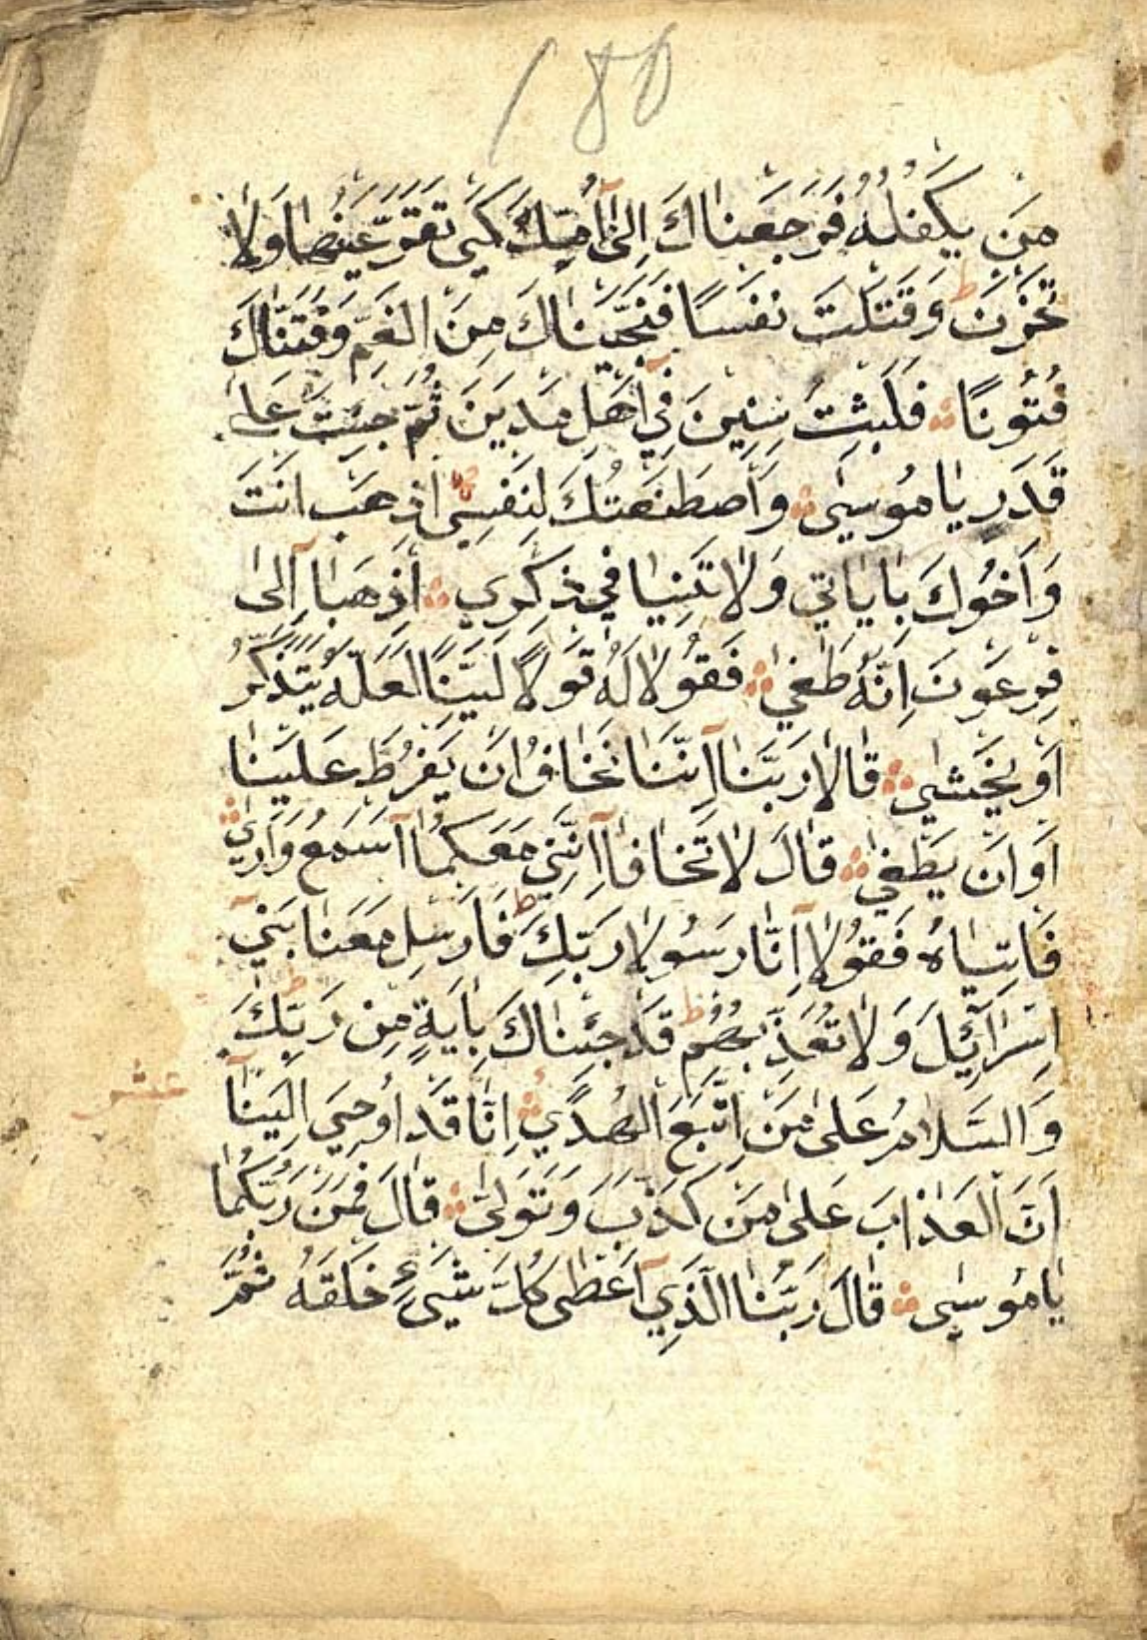 مَن يَكْفُلُهُ فَرَجَعْنَاكَ اِلٰى اُمِّكَ كَيْ تَقَرَّ عَيْنُهَا وَلَا
تَحْزَنَ ط وَقَتَلْتَ نَفْسًا فَنَجَّيْنَاكَ مِنَ الْغَمِّ وَفَتَنَّاكَ
فُتُونًا فَلَبِثْتَ سِنِينَ فِي اَهْلِ مَدْيَنَ ثُمَّ جِئْتَ عَلٰى
قَدَرٍ يَامُوسٰى وَاصْطَنَعْتُكَ لِنَفْسِي اِذْهَبْ اَنْتَ
وَاَخُوكَ بِاٰيَاتِي وَلَا تَنِيَا فِي ذِكْرِي اِذْهَبَا اِلٰى
فِرْعَوْنَ اِنَّهُ طَغٰى فَقُولَا لَهُ قَوْلًا لَيِّنًا لَعَلَّهُ يَتَذَكَّرُ
اَوْ يَخْشٰى قَالَا رَبَّنَا اِنَّنَا نَخَافُ اَنْ يَفْرُطَ عَلَيْنَا
اَوْ اَنْ يَطْغٰى قَالَ لَا تَخَافَا اِنَّنِي مَعَكُمَا اَسْمَعُ وَاَرٰى
فَاْتِيَاهُ فَقُولَا اِنَّا رَسُولَا رَبِّكَ ط فَاَرْسِلْ مَعَنَا بَنِي
اِسْرَآئِلَ وَلَا تُعَذِّبْهُمْ ط قَدْ جِئْنَاكَ بِاٰيَةٍ مِنْ رَبِّكَ ط
وَالسَّلَامُ عَلٰى مَنِ اتَّبَعَ الْهُدٰى اِنَّا قَدْ اُوحِيَ اِلَيْنَا
عشر
اَنَّ الْعَذَابَ عَلٰى مَنْ كَذَّبَ وَتَوَلّٰى قَالَ فَمَنْ رَبُّكُمَا
يَامُوسٰى قَالَ رَبُّنَا الَّذِي اَعْطٰى كُلَّ شَيْءٍ خَلَقَهُ ثُمَّ